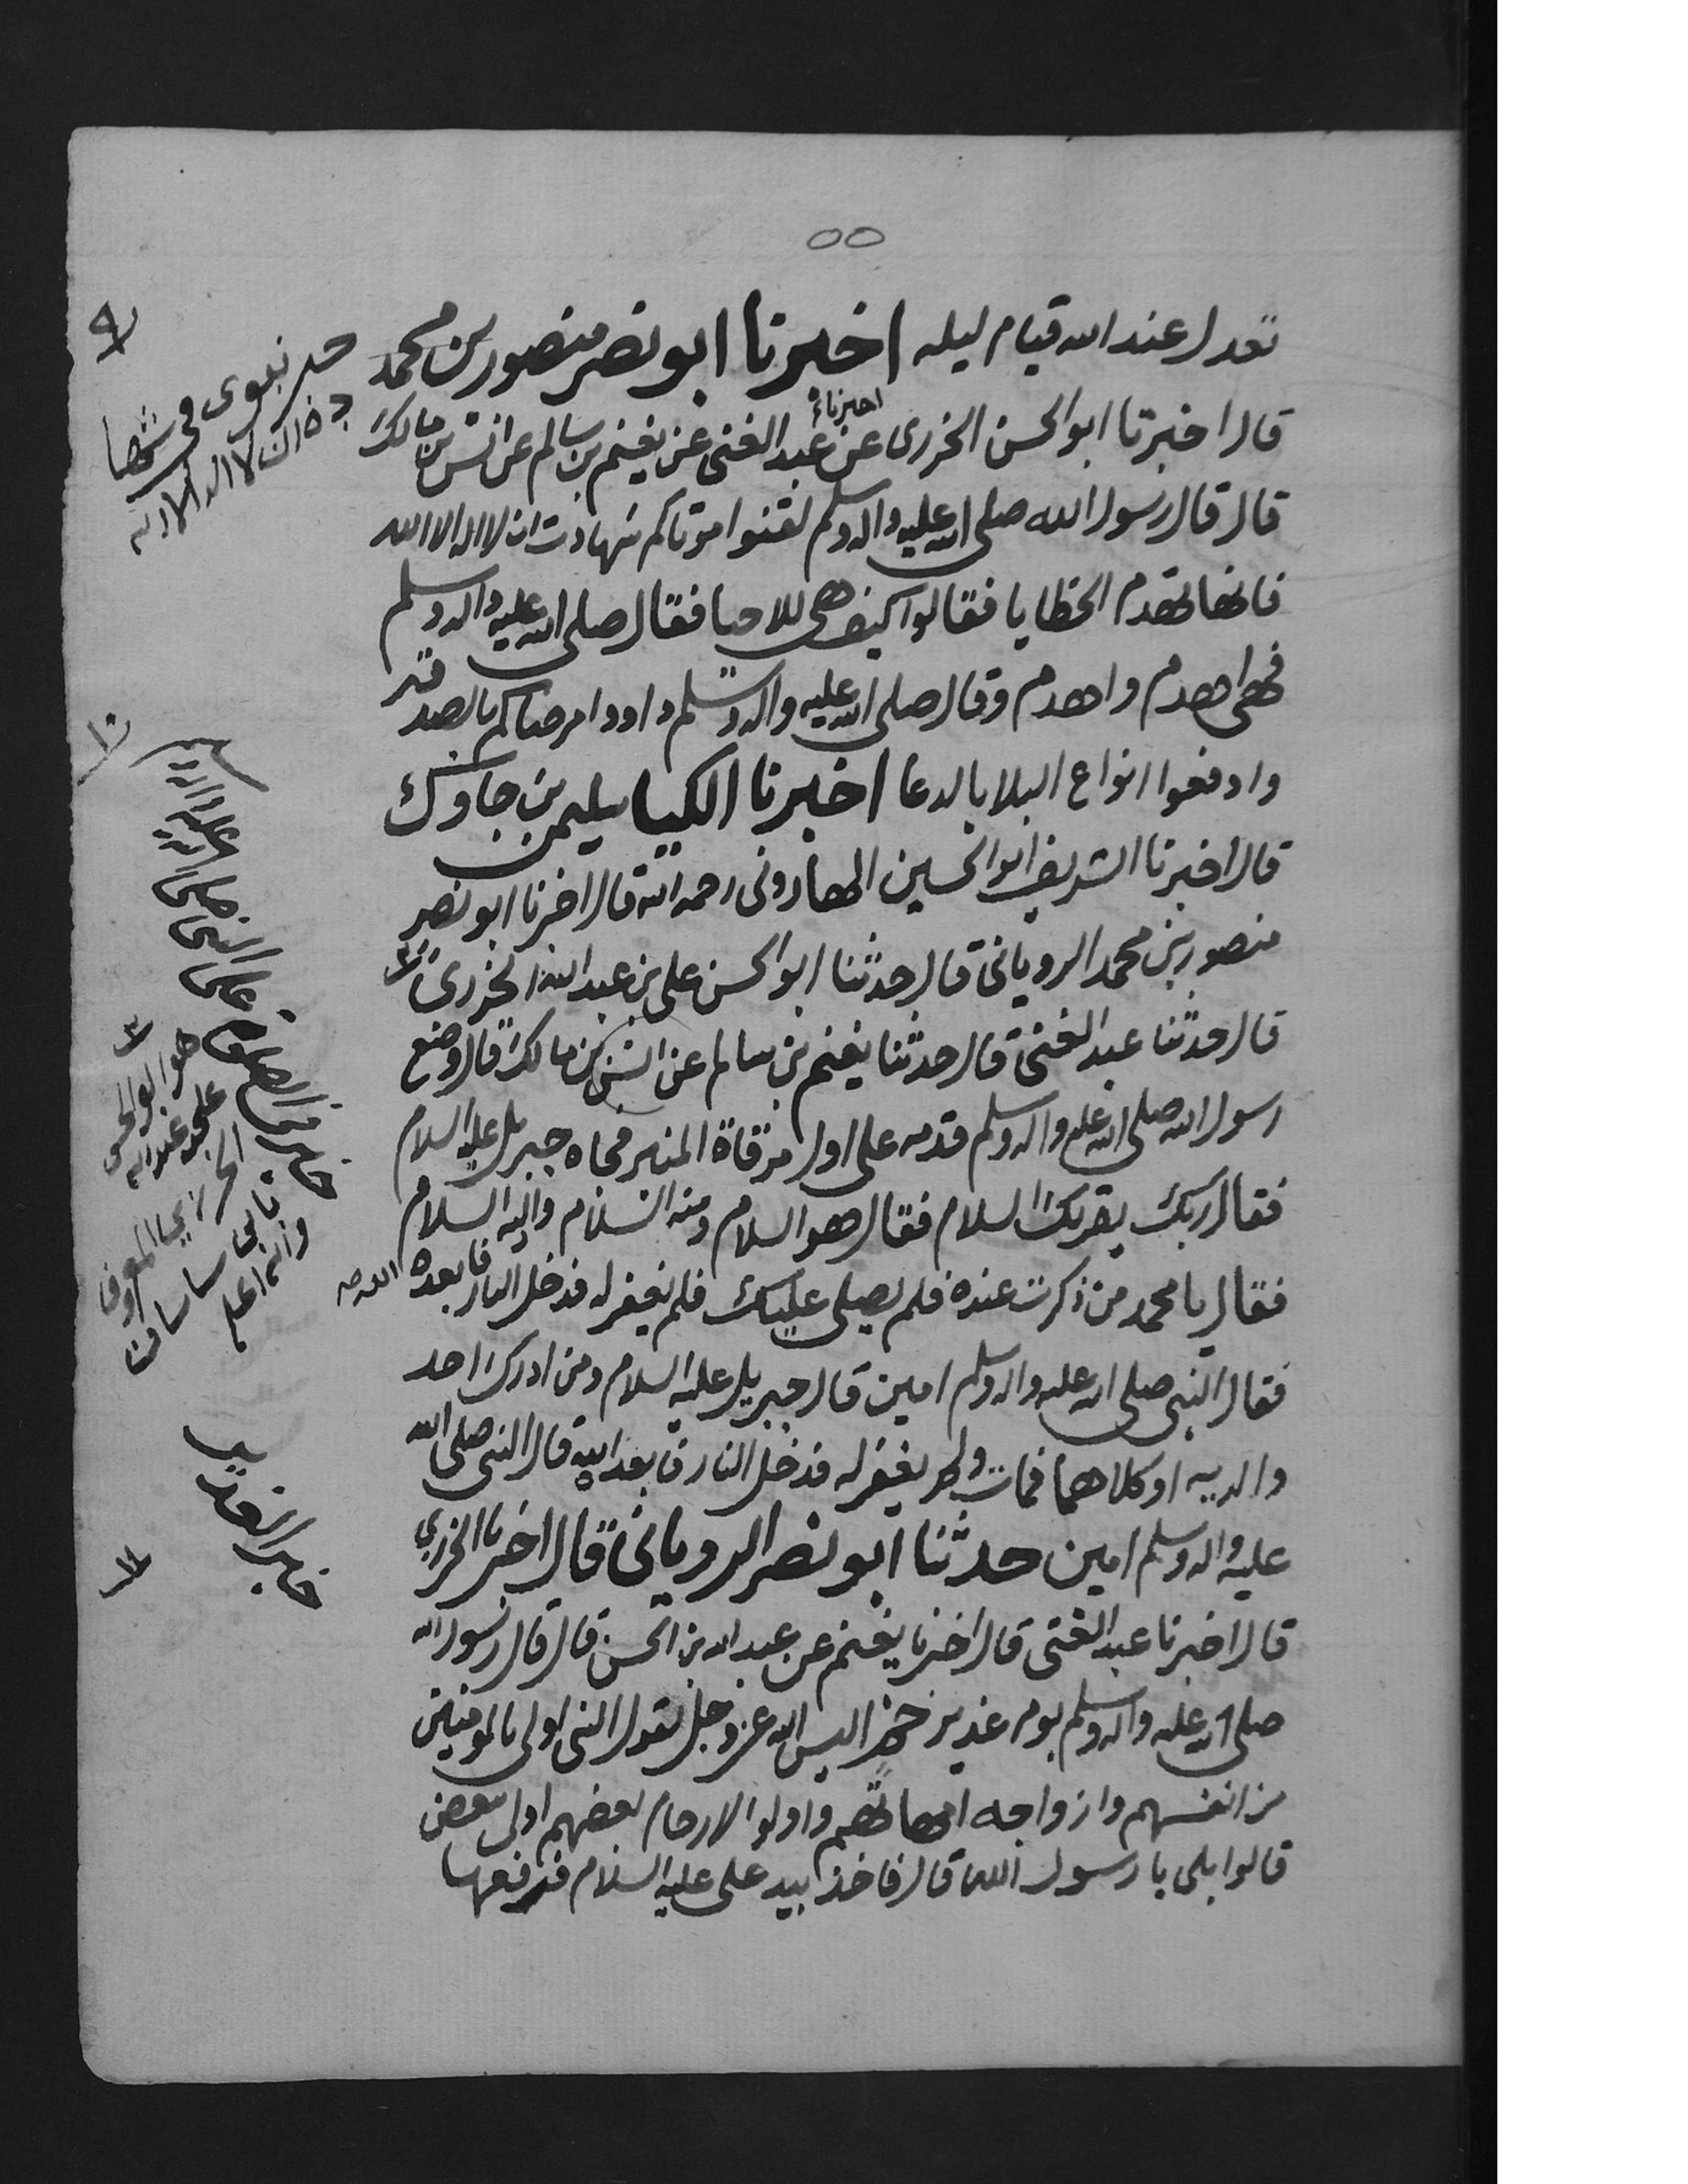 ٥٥
تعدل عند الله قيام ليله اخبرنا ابو نصر منصور بن محمد
قال اخبرنا ابو الحسن الخزرى عن عبد الغنى عن يغنم بن سالم عن انس بن مالك
اخبرنا
قال قال رسول الله صلى الله عليه واله وسلم لقنوا موتاكم شهادت ان لا اله الا الله
فانها تهدم الخطايا فقالوا كيف هى للاحيا فقال صلى الله عليه واله وسلم
فهى اهدم واهدم وقال صلى الله عليه واله وسلم داووا مرضاكم بالصدقة
وادفعوا انواع البلا بالدعا اخبرنا الكيا سليمن بن جاوك
قال اخبرنا الشريف ابو الحسين الهارونى رحمه الله قال اخبرنا ابو نصر
منصور بن محمد الرويانى قال حدثنا ابو الحسن على بن عبد الله الخزرى
قال حدثنا عبد الغنى قال حدثنا يغنم بن سالم عن انس بن مالك قال وضع
رسول الله صلى الله عليه واله وسلم قدمه على اول مرقاة المنبر فجاه جبريل عليه السلام
فقال ربك يقريك السلام فقال هو السلام ومنه السلام واليه السلام
فقال يا محمد من ذكرت عنده فلم يصلى عليك فلم يغفر له فدخل النار فابعده الله
فقال النبى صلى الله عليه واله وسلم امين قال جبريل عليه السلام ومن ادرك احد
والديه او كلاهما فمات ولم يغفر له فدخل النار فابعد الله قال النبى صلى الله
عليه واله وسلم امين حدثنا ابو نصر الرويانى قال اخبرنا الخزرى
قال اخبرنا عبد الغنى قال اخبرنا يغنم عن عبد الله بن الحسن قال قال رسول الله
صلى الله عليه واله وسلم يوم غدير خم اليس الله عز وجل يقول النبى اولى بالمومنين
من انفسهم وازواجه امهاتهم واولوا الارحام بعضهم اولى ببعض
قالوا بلى يا رسول الله قال فاخذ بيد على عليه السلام فرفعها
٩
حديث نبوى فى
ان لا اله الا الله
١٠
خبر فى الصلوة على النبى صلى الله عليه واله وسلم
هو ابو الحسن
على بن عبد الله
المعروف
والله اعلم
خبر الغدير
١١